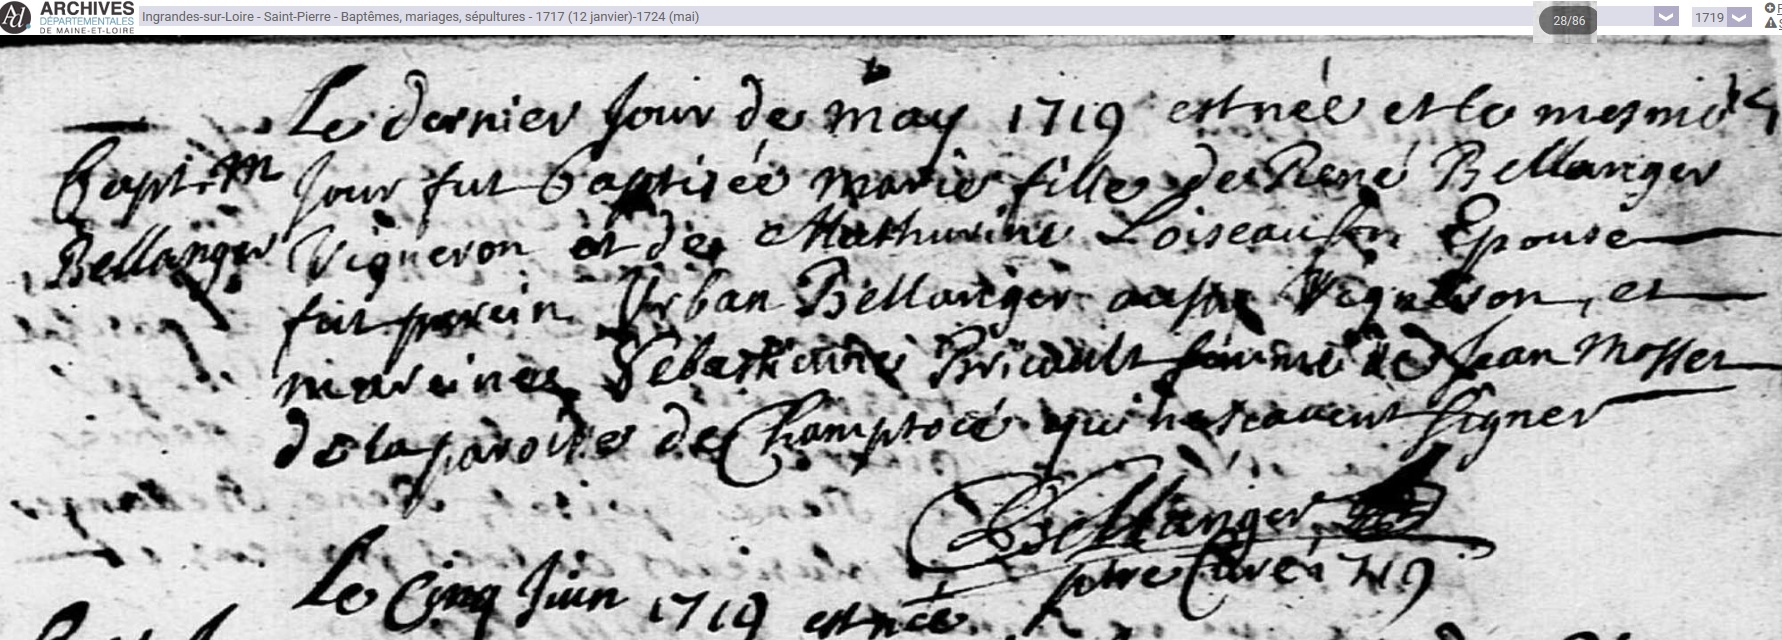 ARCHIVES
DÉPARTEMENTALES
DE MAINE-ET-LOIRE
Ingrandes-sur-Loire - Saint-Pierre - Baptêmes, mariages, sépultures - 1717 (12 janvier)-1724 (mai)
28/86
1719
Le dernier Jour de may 1719 est née et le mesme
Bapt. M Jour fut baptisée marie fille de René Bellanger
Bellanger Vigneron et de Mathurine Loiseau son Epouse
fut parein Urban Bellanger aussy Vigneron, et
mareine Sebastienne Bricault femme de Jean Mosset
de la paroisse de Champtocé qui ne scavent signer
Bellanger
ptre Curé
Le Cinq Juin 1719 est née